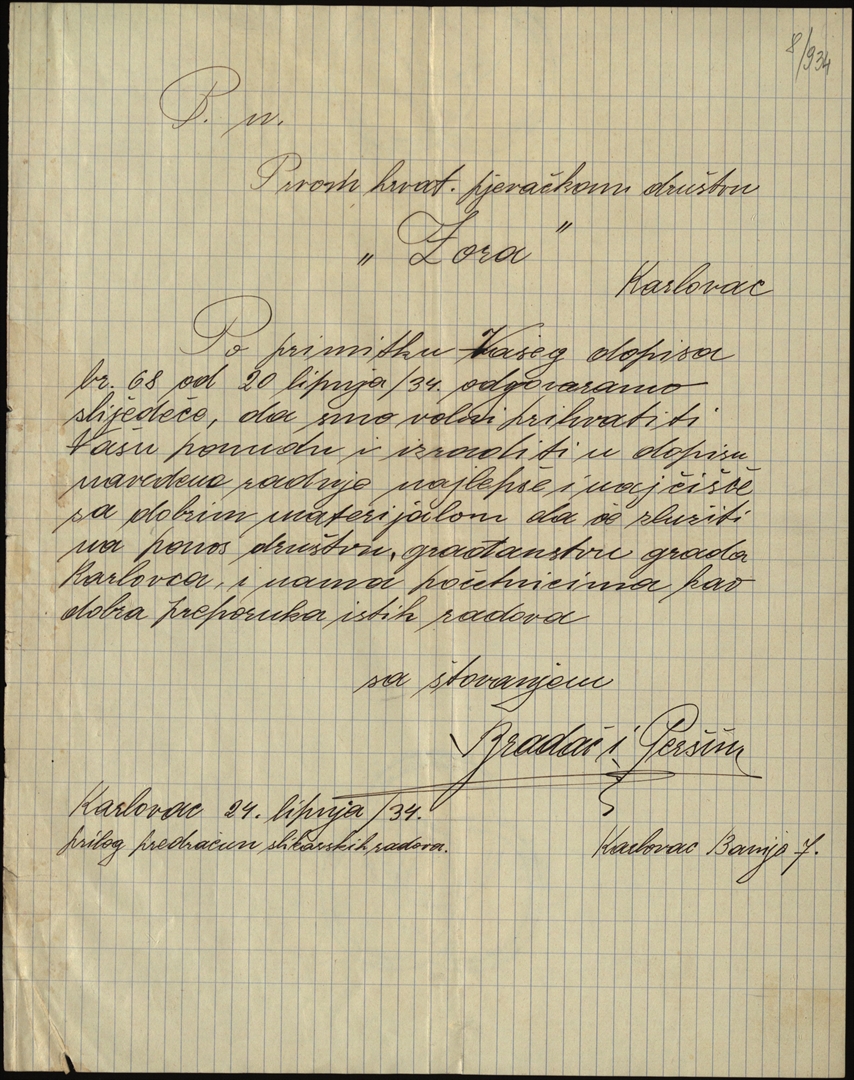 8/934
P. n.
Prvom hrvat. pjevačkom društvu
„ Zora "
Karlovac
Po primitku Vašeg dopisa
br. 68 od 20 lipnja /34. odgovaramo
slijedeće, da smo voljni prihvatiti
Vašu ponudu i izraditi u dopisu
navedene radnje najlepše i najčišće
sa dobrim materijalom da će služiti
na ponos društvu, građanstvu grada
Karlovca, i nama početnicima kao
dobra preporuka istih radova
sa štovanjem
Bradač i Peršin
Karlovac 24. lipnja /34.
prilog predračun sličarskih radova.
Karlovac Banija 7.